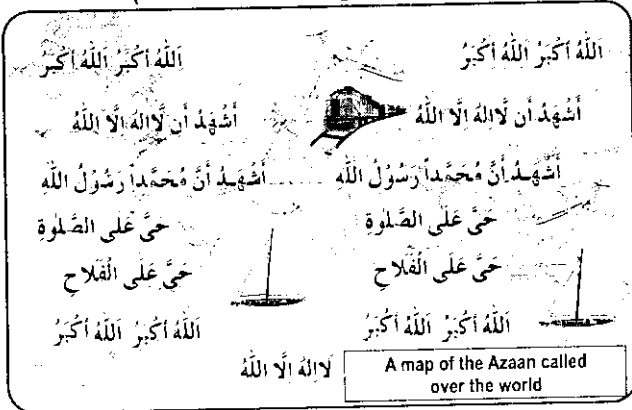 اَللّٰهُ أَكْبَرُ اَللّٰهُ أَكْبَرُ اَللّٰهُ أَكْبَرُ اَللّٰهُ أَكْبَرُ
أَشْهَدُ أَن لَّااِلٰهَ اِلَّا اللّٰهُ أَشْهَدُ أَن لَّااِلٰهَ اِلَّا اللّٰهُ
أَشْهَدُ أَنَّ مُحَمَّداً رَسُوْلُ اللّٰه أَشْهَدُ أَنَّ مُحَمَّداً رَسُوْلُ اللّٰه
حَىَّ عَلى الصَّلٰوةِ حَىَّ عَلى الصَّلٰوةِ
حَىَّ عَلَى الْفَلَاحِ حَىَّ عَلَى الْفَلَاحِ
اَللّٰهُ أَكْبَرُ اَللّٰهُ أَكْبَرُ اَللّٰهُ أَكْبَرُ اَللّٰهُ أَكْبَرُ
لَااِلٰهَ اِلَّا اللّٰهُ
A map of the Azaan called
over the world